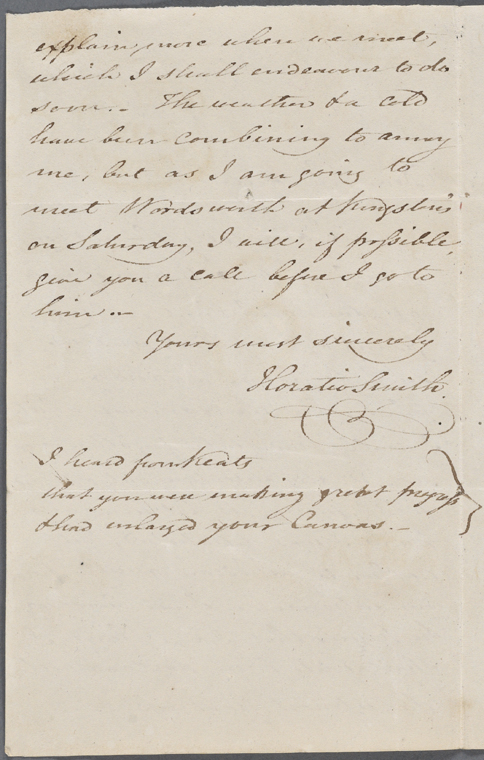 explain more when we meet,
which I shall endeavour to do
soon.- The weather & a cold
have been combining to annoy
me, but as I am going to
meet Wordsworth at Kingston's
on Saturday, I will, if possible,
give you a call before I go to
him.-
Yours most sincerely
Horatio Smith.
I heard from Keats
that you were making great progress
& had enlarged your Canvas.-